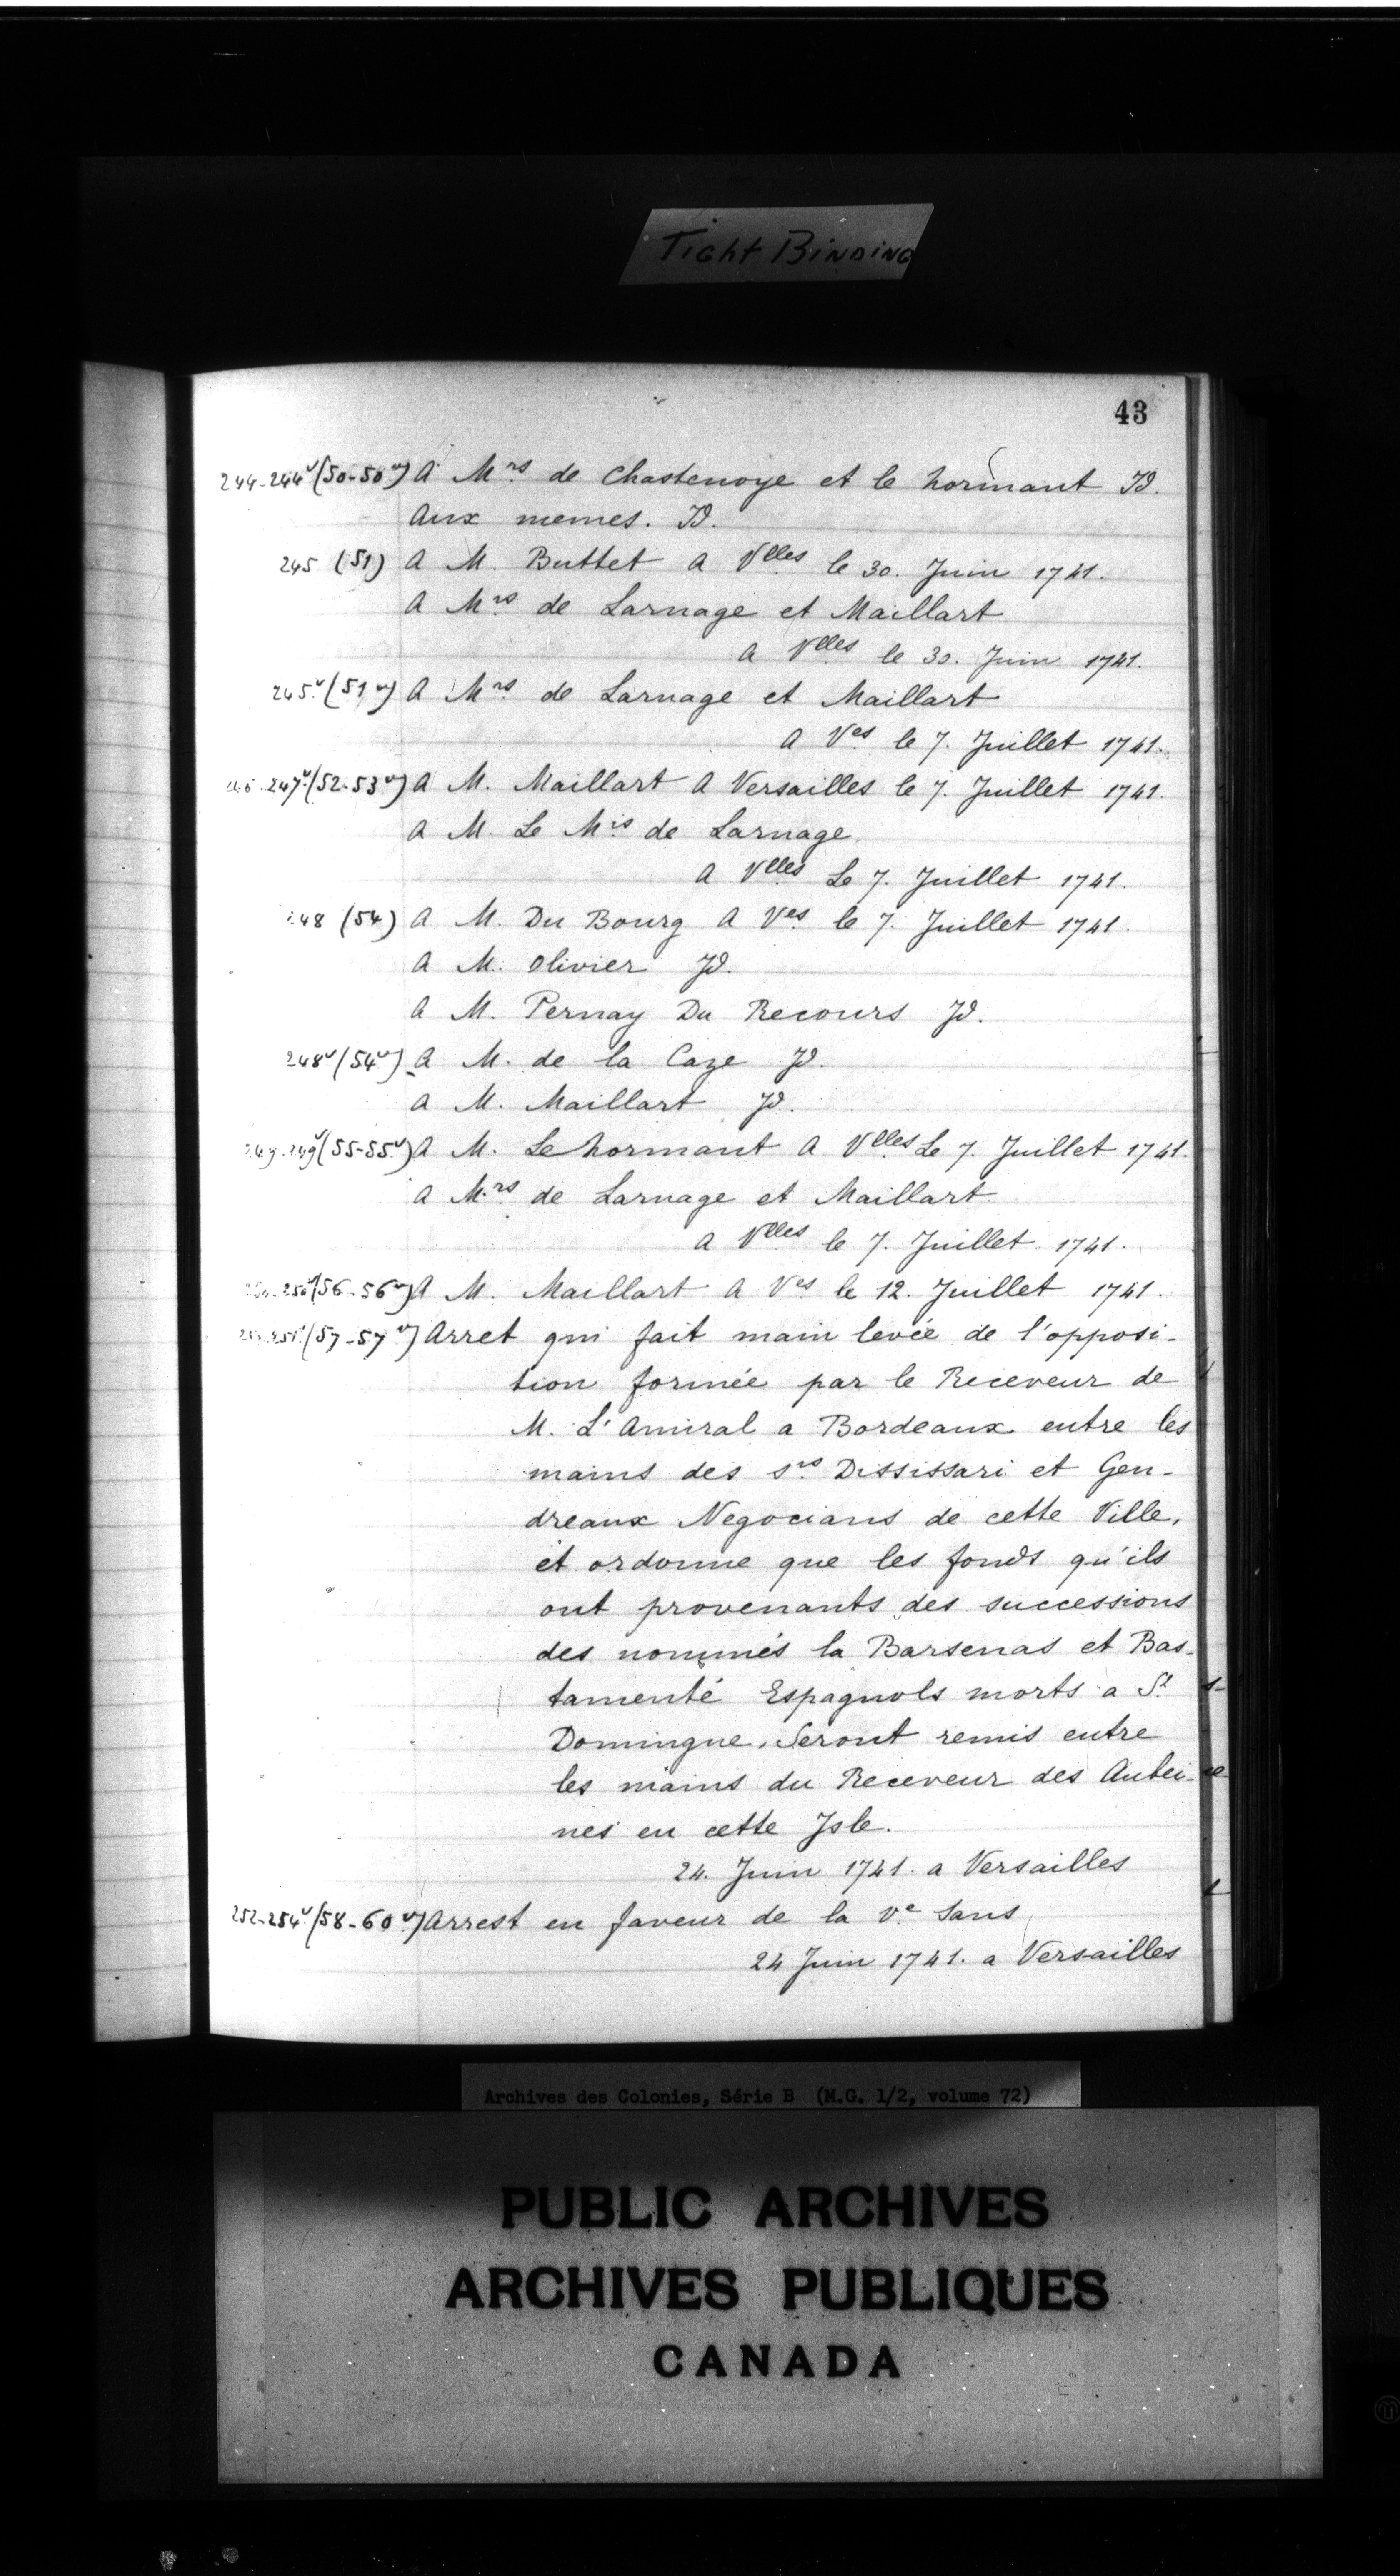 Tight Binding
43
244-244v (50-50v) A Mrs de Chastenoye et le hormant Id.
Aux memes. Id.
245 (51) A M. Buttet A Vlles le 30. Juin 1741.
A Mrs de Larnage et Maillart
A Vlles le 30. Juin 1741.
245v (51v) A Mrs de Larnage et Maillart
A Ves le 7. Juillet 1741.
247v (52-53v) A M. Maillart A Versailles le 7. Juillet 1741.
A M. Le Mis de Larnage.
A Vlles Le 7. Juillet 1741.
248 (54) A M. Du Bourg A Ves le 7. Juillet 1741.
A M. Olivier Jd.
A M. Pernay Du Recours Jd.
248v (54v) A M. de la Caze Jd.
A M. Maillart Jd.
249-249v (55-55v) A M. Le hormant A Vlles Le 7. Juillet 1741.
A M.rs de Larnage et Maillart
A Vlles le 7. Juillet 1741.
250v (56-56v) A M. Maillart A Ves le 12. Juillet 1741.
(57-57v) Arret qui fait main levée de l'opposi-
tion formée par le Receveur de
M. L'Amiral a Bordeaux entre les
mains des srs Dississari et Gen-
dreaux Negocians de cette Ville,
et ordonne que les fonds qu'ils
ont provenants des successions
des nommés la Barsenas et Bas-
tamenté Espagnols morts a St
Domingue, Seront remis entre
les mains du Receveur des Aubei-
nes en cette Jsle.
24. Juin 1741. a Versailles
252-254v (58-60v) Arrest en faveur de la ve Sans
24 Juin 1741. a Versailles
Archives des Colonies, Série B (M.G. 1/2, volume 72)
PUBLIC ARCHIVES
ARCHIVES PUBLIQUES
CANADA